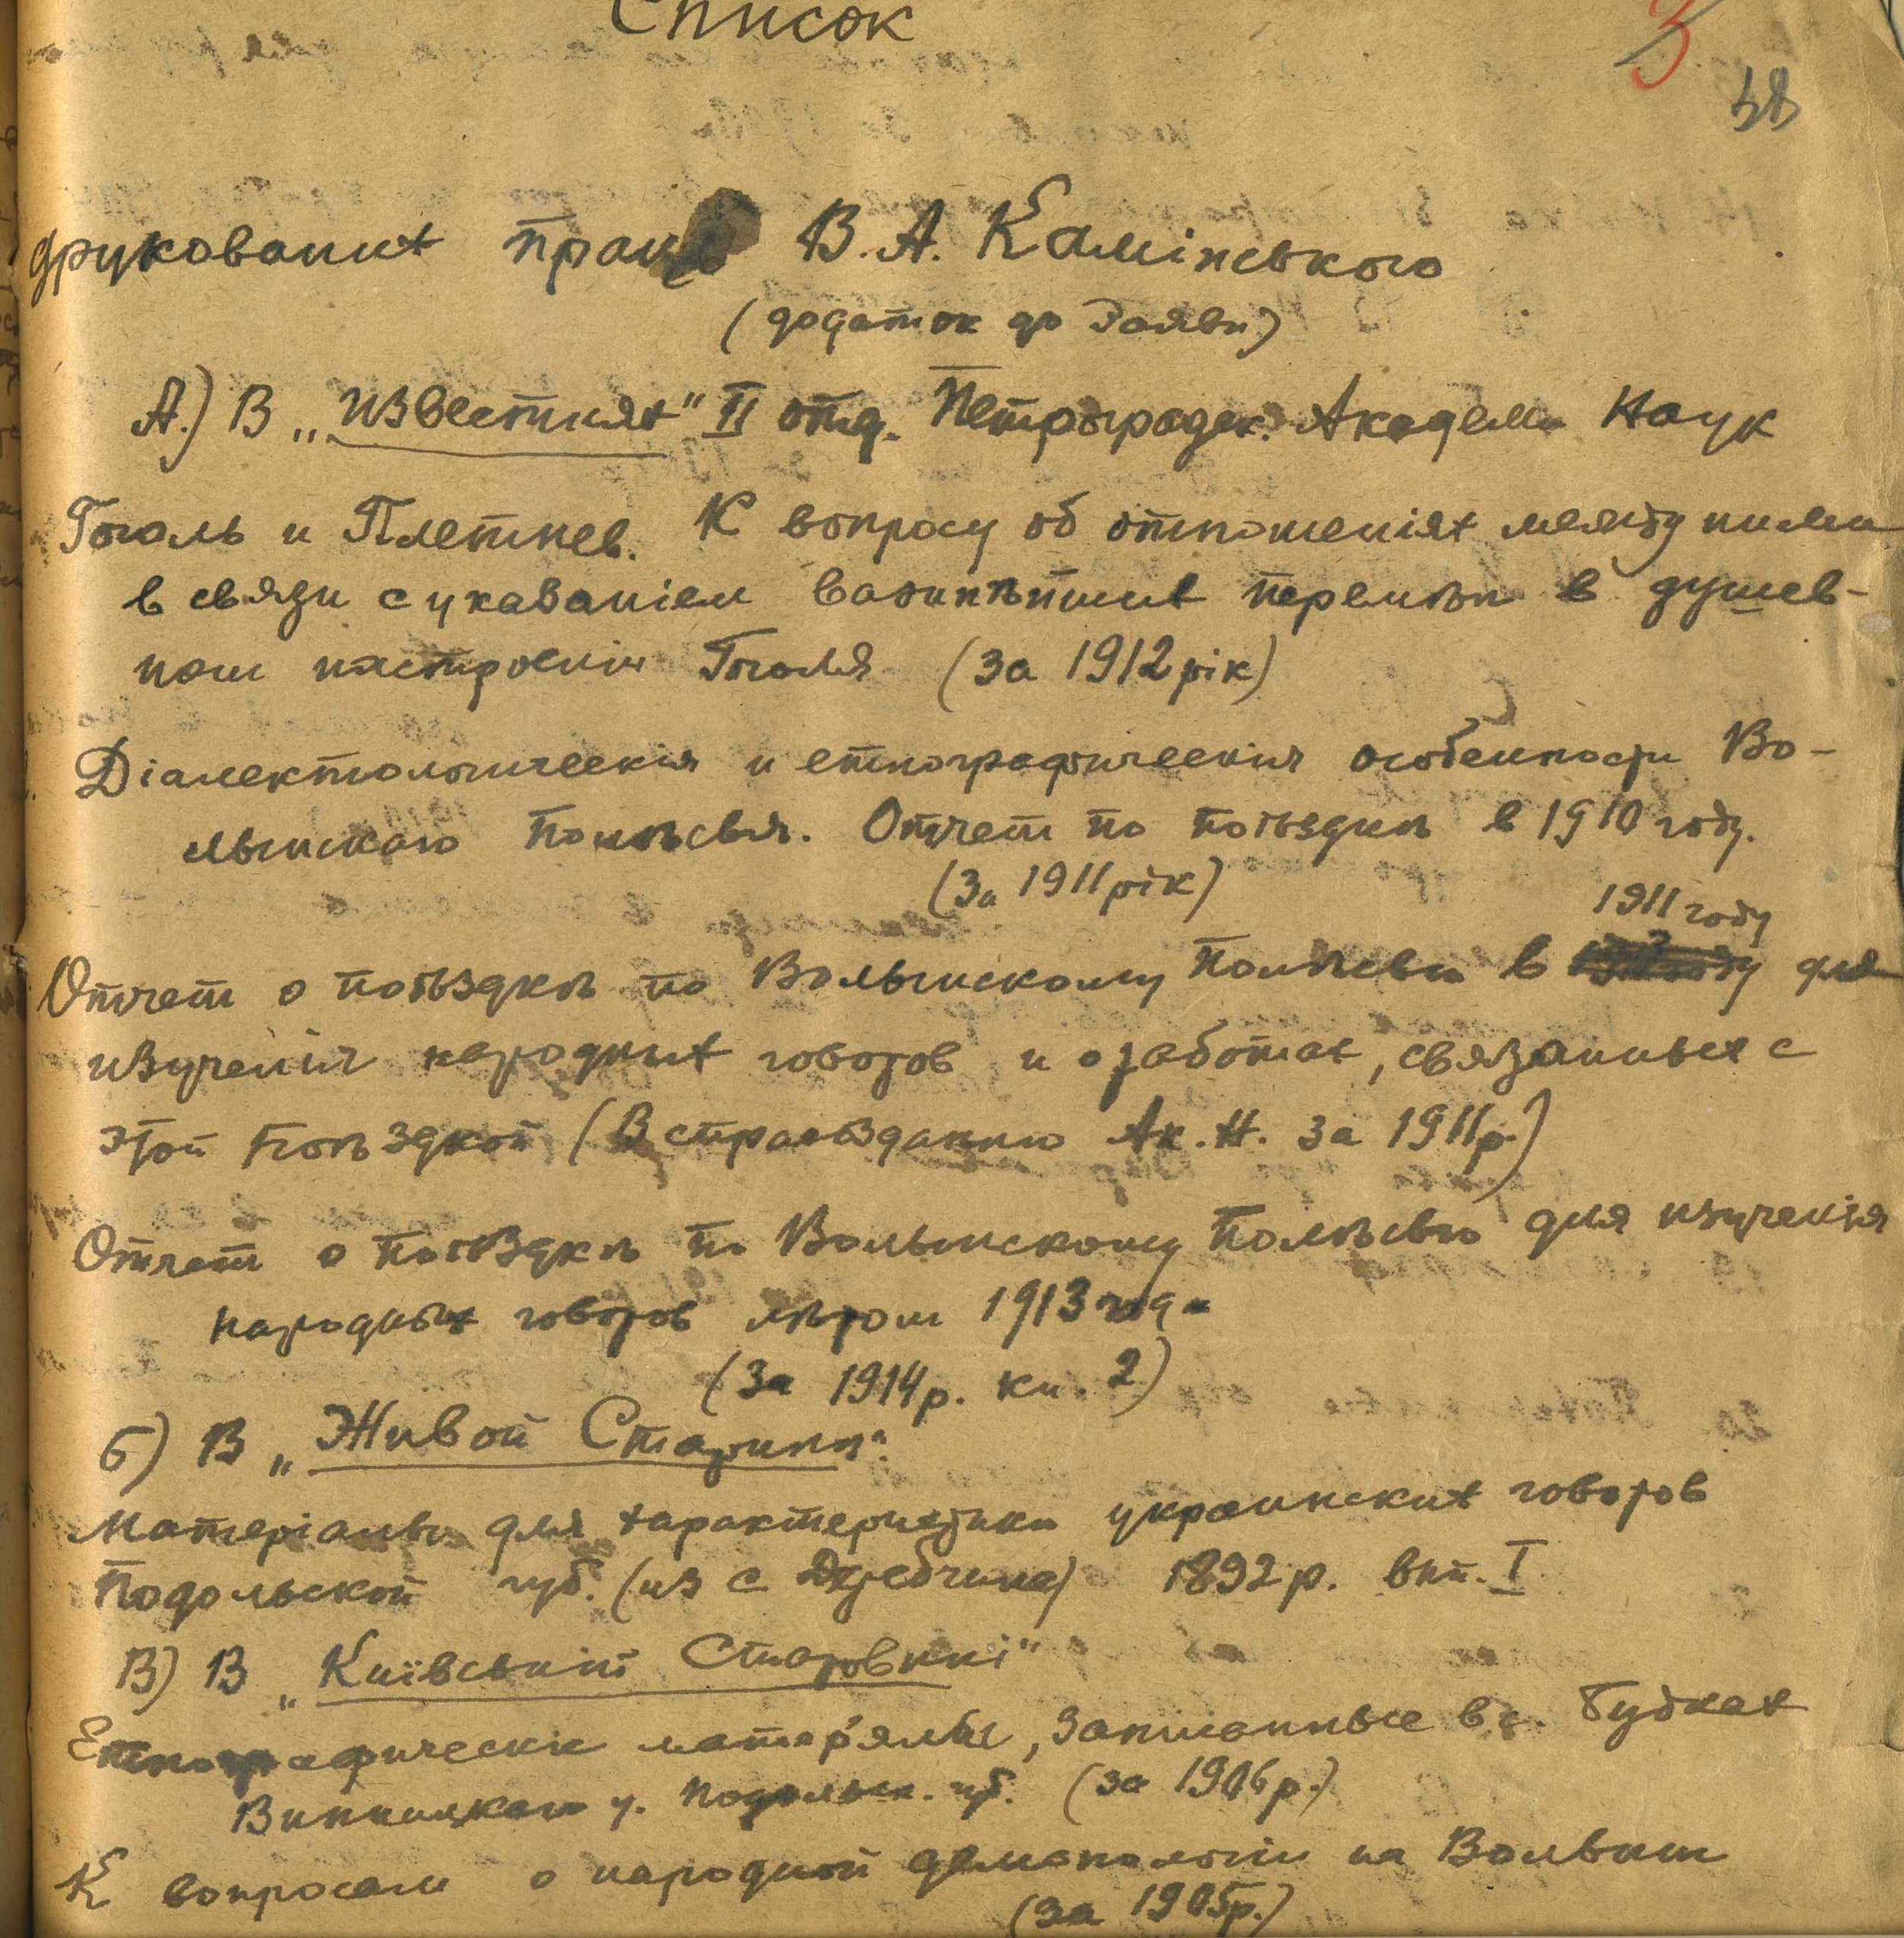 Список
3
38
друкованих праць В. А. Камінського
(додаток до Заяви)
А.) В „Известиях" II отд. Петроградск. Академи Наук
Гоголь и Плетнев. К вопросу об отношеніях между ними
в связи с указаніем важнѣйших перемѣн в душев-
ном настроеніи Гоголя (За 1912 рік)
Діалектологическия и етнографическия особенности Во-
лынскаго Полѣсья. Отчет по поѣздкѣ в 1910 году.
(За 1911 рік)
1911 году
Отчет о поѣздкѣ по Волынскому Полѣсью в для
изученія народных говоров и о работах, связанных с
этой поѣздкой (В Ак. Н. за 1911 р.)
Отчет о поѣздкѣ по Волынскому Полѣсью для изученія
народных говоров лѣтом 1913 года
(За 1914 р. кн. 2)
б) В „Живой Старинѣ"
Матеріалы для характеристики украинских говоров
Подольской губ. (из с. Деребчина) 1892 р. вып. I
В) В „Київській Старовині"
Етнографическіе матерʼялы, записанные в с. Будках
Винницкаго у. Подольск. губ. (за 1906 р.)
К вопросам о народной демонологіи на Волыни
(за 1905 р.)